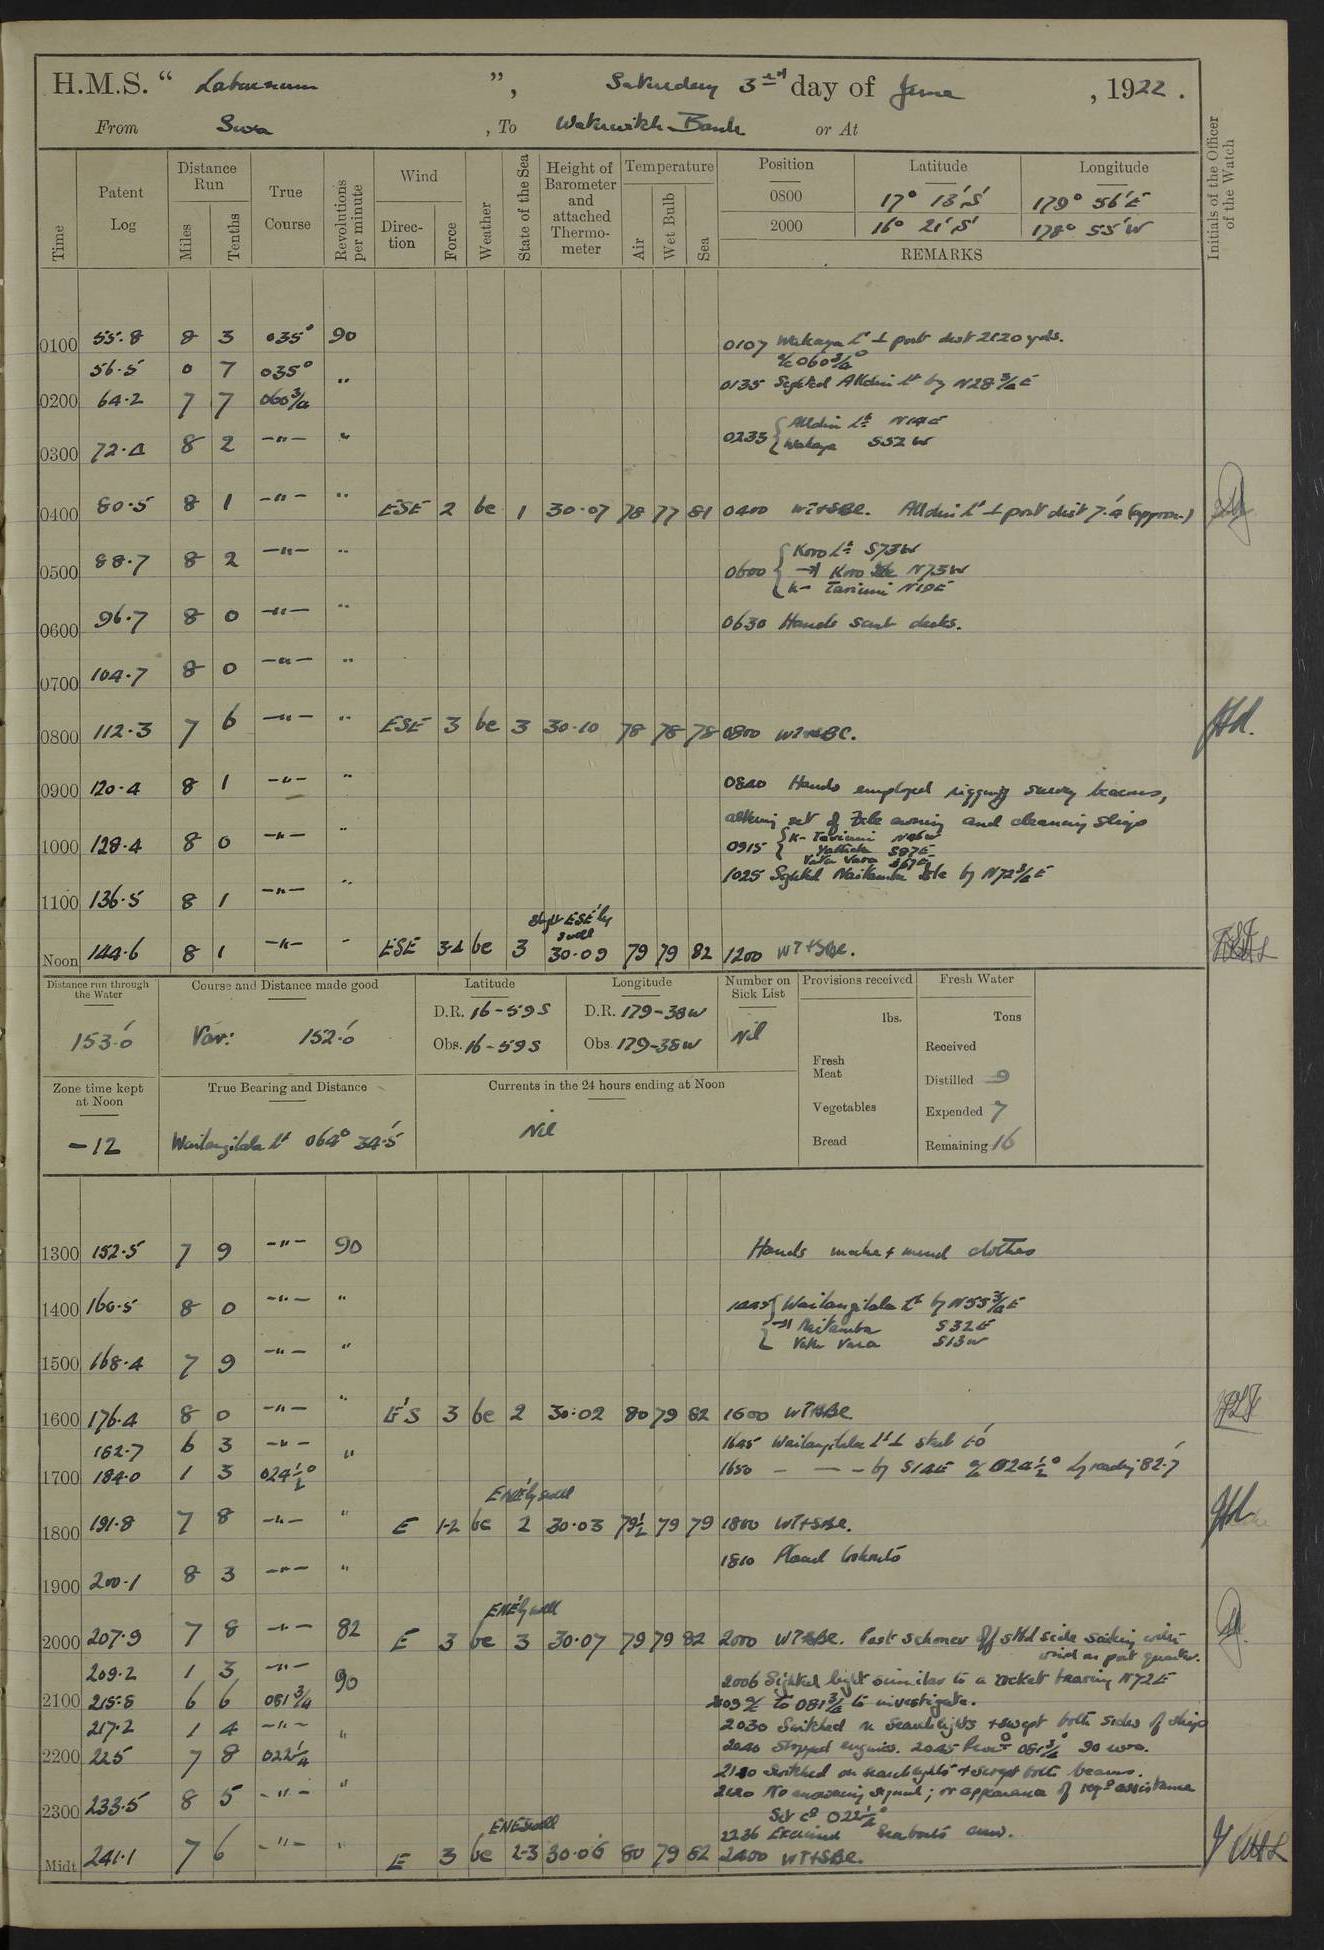 H.M.S. “ Laburnum ”, Saturday 3rd day of June , 1922 .
From Suva , To Waterwitch Bank or At
Time Patent Log Distance Run Miles Tenths True Course Revolutions per minute Wind Direction Force Weather State of the Sea Height of Barometer and attached Thermometer Temperature Air Wet Bulb Sea Position Latitude Longitude Initials of the Officer of the Watch
0800 17° 13' S 179° 56' E
2000 16° 21' S 178° 55' W
REMARKS
0100 55.8 8 3 035° 90
0107 Wakaya Lt ⊥ port dist 2120 yds.
a/c 060 3/4°
56.5 0 7 035° "
0135 Sighted Alldin Lt by N28 3/4 E
0200 64.2 7 7 060 3/4
0235 { Alldin Lt N14E
Wakaya S52W
0300 72.4 8 2 -"- "
0400 80.5 8 1 -"- " ESE 2 bc 1 30.07 78 77 81 0400 WT+SBE. Alldin Lt ⊥ port dist 7.4 (approx.)
0500 88.7 8 2 -"- "
0600 { Koro Lt S73W
→| Koro Isle N73W
|← Taviuni N10E
0600 96.7 8 0 -"- "
0630 Hands scrub decks.
0700 104.7 8 0 -"- "
0800 112.3 7 6 -"- " ESE 3 bc 3 30.10 78 78 78 0800 WT+SBE.
0900 120.4 8 1 -"- "
0840 Hands employed rigging survey beacons,
altering set of awning and cleaning ship
1000 128.4 8 0 -"- "
0915 { |← Taviuni N06W
Yathata S87E
Vatu Vara S67E
1025 Sighted Naitamba Isle by N72 3/4 E
1100 136.5 8 1 -"- "
Slight ESE'ly swell
Noon 144.6 8 1 -"- " ESE 3-4 bc 3 30.09 79 79 82 1200 WT+SBE.
Distance run through the Water Course and Distance made good Latitude Longitude Number on Sick List Provisions received Fresh Water
153.0 Var: 152.0 D.R. 16-59 S D.R. 179-38 W Nil lbs. Tons
Obs. 16-59 S Obs. 179-38 W Received
Fresh Meat Distilled 9
Zone time kept at Noon True Bearing and Distance Currents in the 24 hours ending at Noon
Vegetables Expended 7
-12 Wailangilala Lt 064° 34.5 Nil Bread Remaining 16
1300 152.5 7 9 -"- 90 Hands make + mend clothes
1400 160.5 8 0 -"- "
1445 { Wailangilala Lt by N55 3/4 E
→| Naitamba S32E
Vatu Vara S13W
1500 168.4 7 9 -"- "
1600 176.4 8 0 -"- " E'S 3 bc 2 30.02 80 79 82 1600 WT+SBE
182.7 6 3 -"- " 1645 Wailangilala Lt ⊥ stbd
1700 184.0 1 3 024 1/2° 1650 - - - by S14E a/c 024 1/2° Lg reading 82.7
ENE'ly swell
1800 191.8 7 8 -"- " E 1-2 bc 2 30.03 79 1/2 79 79 1800 WT+SBE.
1810 Placed lookouts
1900 200.1 8 3 -"- "
ENE'ly swell
2000 207.9 7 8 -"- 82 E 3 bc 3 30.07 79 79 82 2000 WT+SBE. Past schoner off stbd side sailing with
wind on port quarter.
209.2 1 3 -"- 90 2006 Sighted light similar to a rocket bearing N72E
2100 215.8 6 6 081 3/4 2009 a/c to 081 3/4 to investigate.
217.2 1 4 -"- " 2030 Switched on searchlights + swept both sides of ship
2200 225 7 8 022 1/4 2040 Stopped engines. 2045 Procd 081 3/4° 90 revs.
Switched on searchlights + swept both beams.
No answering signal; or appearance of reqd assistance
2300 233.5 8 5 -"- " Set co 022 1/4°
2236 Exercised Seaboats crew.
ENE swell
Midt. 241.1 7 6 -"- " E 3 bc 2-3 30.06 80 79 82 2400 WT+SBE.